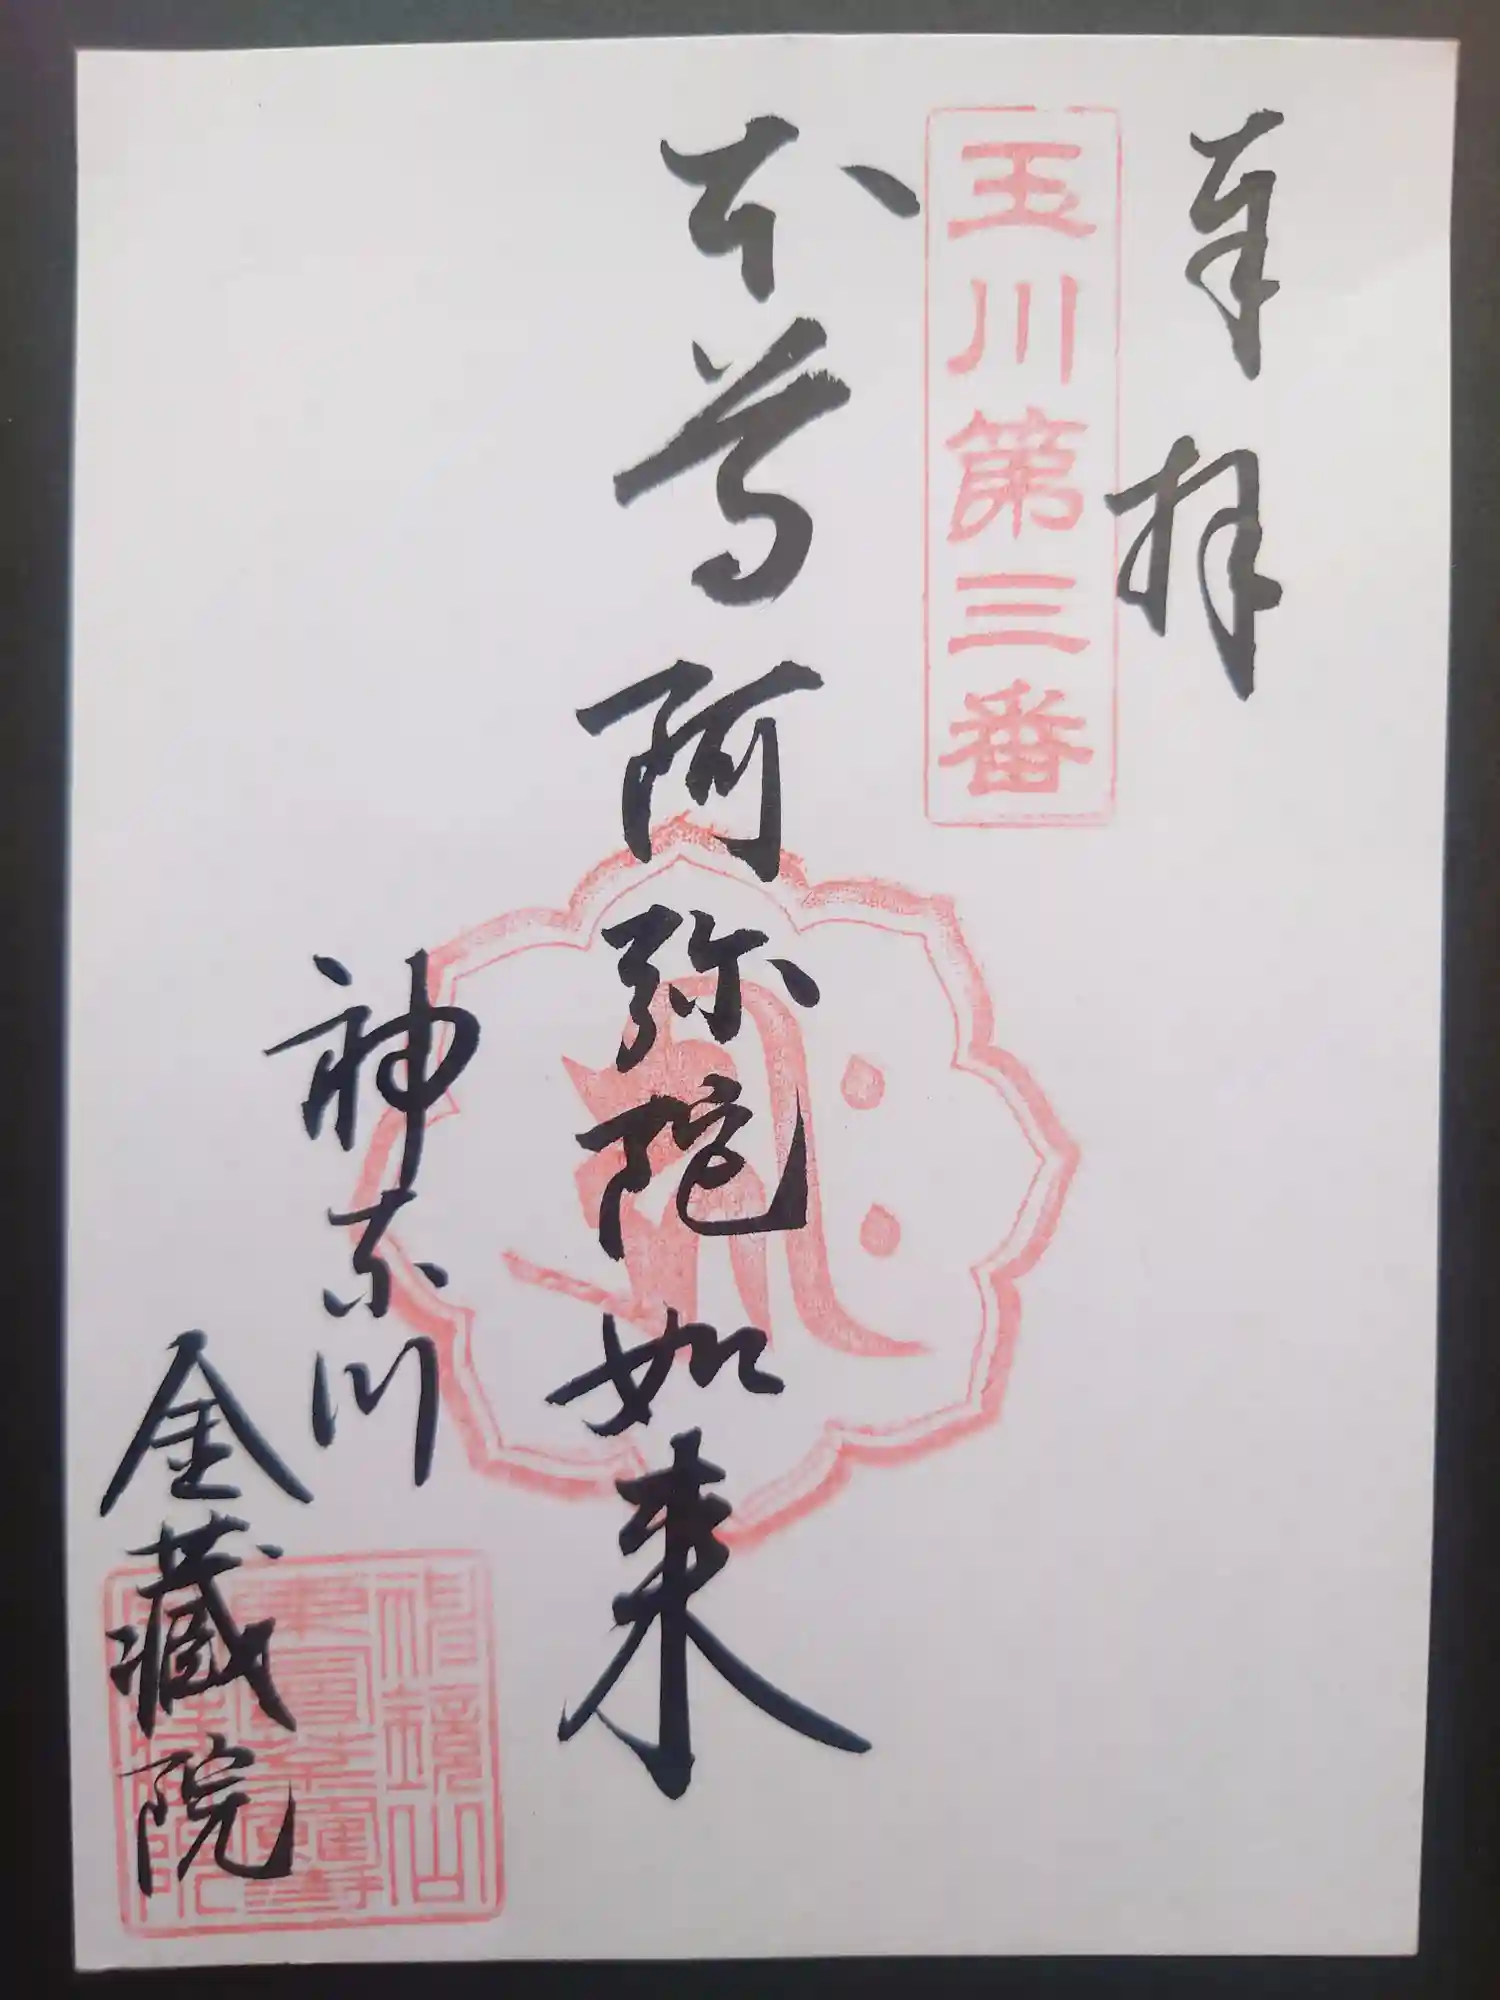 奉拝
玉川第三番
本尊阿弥陀如来
神奈川
金蔵院
神鏡山